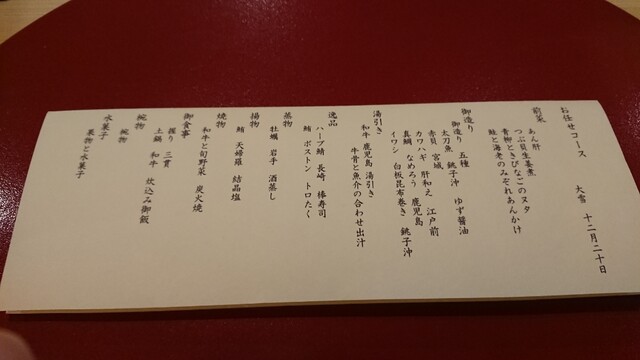 お任せコース　大雪　十二月二十日
前菜
あん肝
つぶ貝生姜煮
青柳ときびなごのヌタ
鮭と海老のみぞれあんかけ
御造り
御造り　五種
太刀魚　銚子沖　ゆず醤油
赤貝　宮城
カワハギ　肝和え　江戸前
真鯛　なめろう　鹿児島
イワシ　白板昆布巻き　銚子沖
湯引き
和牛　鹿児島　湯引き
牛骨と魚介の合わせ出汁
逸品
ハーブ鯖　長崎　棒寿司
鮪　ボストン　トロたく
蒸物
牡蠣　岩手　酒蒸し
揚物
鮪　天婦羅　結晶塩
焼物
和牛と旬野菜　炭火焼
御食事
握り　三貫
土鍋　和牛　炊込み御飯
椀物
椀物
水菓子
果物と水菓子